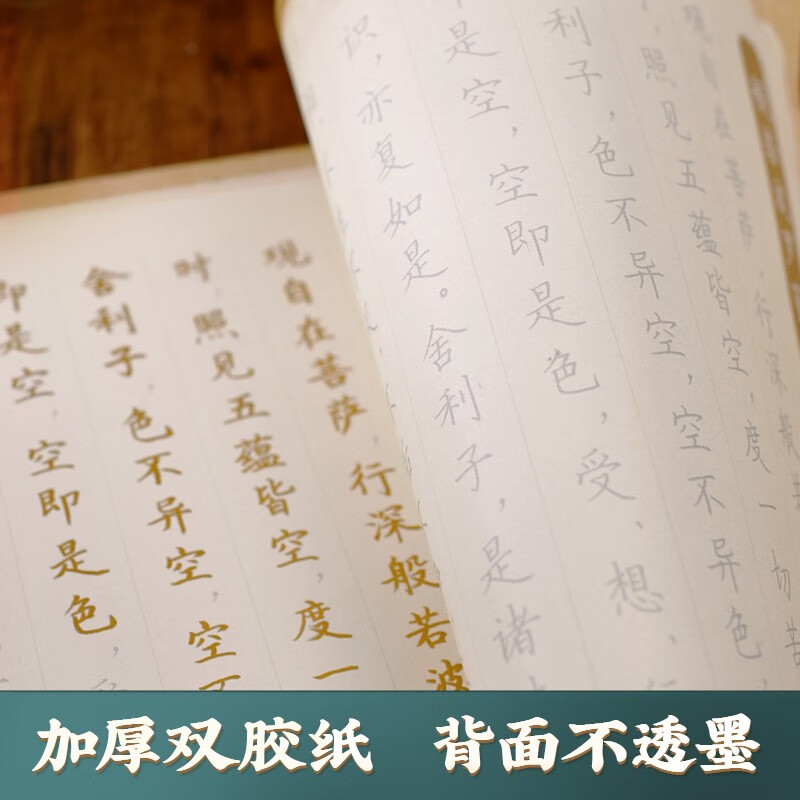 观自在菩萨，行深般若
，照见五蕴皆空，度一切苦
利子，色不异空，空不异色，
是空，空即是色，受、想、
识，亦复如是。舍利子，是诸
观自在菩萨，行深般若波
时，照见五蕴皆空，度一
舍利子，色不异空，空不
即是空，空即是色，
加厚双胶纸 背面不透墨